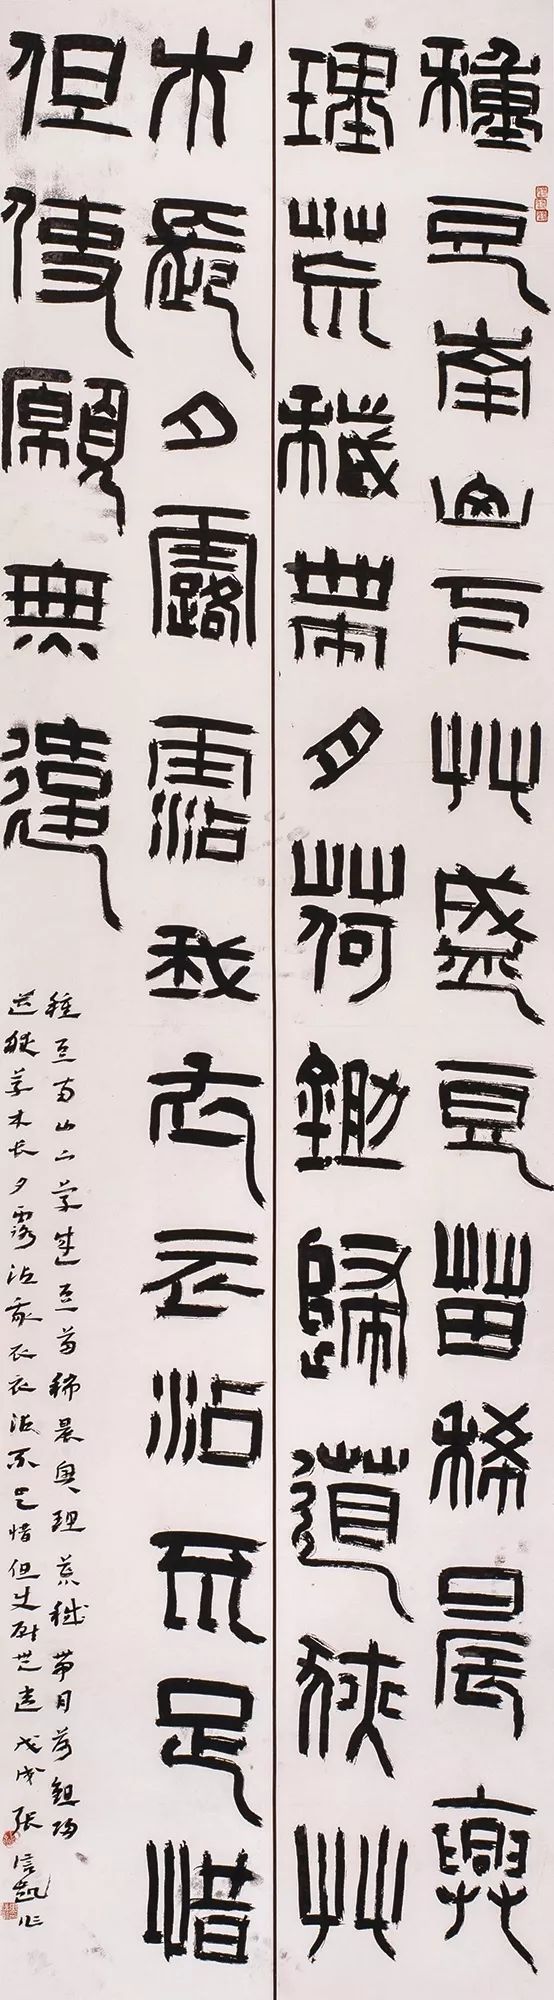 種豆南山下艸盛豆苗稀晨興
理荒穢帶月荷鋤歸道狹艸
木長夕露霑我衣衣沾不足惜
但使願無違
種豆南山下草盛豆苗稀晨興理荒穢帶月荷鉏歸
道狹草木長夕露沾我衣衣沾不足惜但使願無違戊戌張信凱作